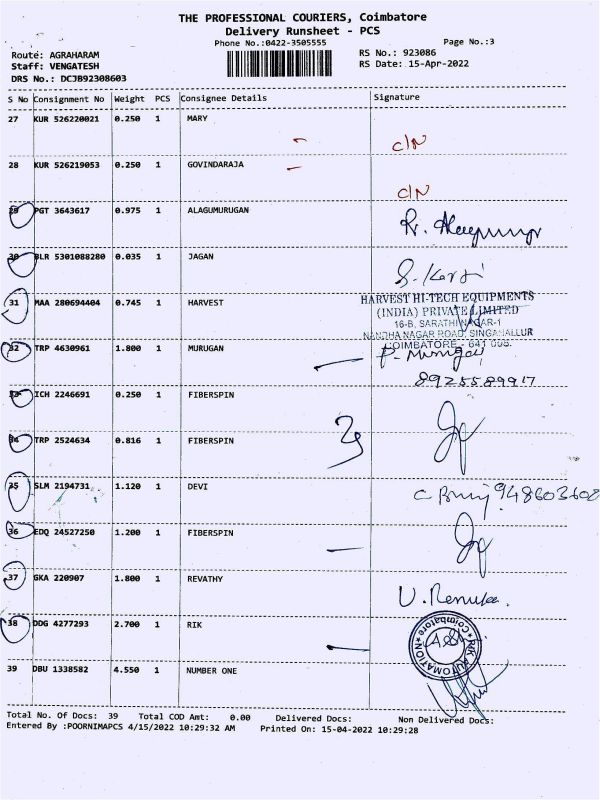 THE PROFESSIONAL COURIERS, Coimbatore
Delivery Runsheet - PCS
Phone No.:0422-3505555
Page No.:3
Route: AGRAHARAM
Staff: VENGATESH
DRS No.: DCJB92308603
RS No.: 923086
RS Date: 15-Apr-2022
S No Consignment No Weight PCS Consignee Details Signature
27 KUR 526220021 0.250 1 MARY
C/N
28 KUR 526219053 0.250 1 GOVINDARAJA
C/N
29 PGT 3643617 0.975 1 ALAGUMURUGAN
30 BLR 5301088280 0.035 1 JAGAN
31 MAA 280694404 0.745 1 HARVEST
HARVEST HI-TECH EQUIPMENTS
(INDIA) PRIVATE LIMITED
16-B, SARATHI NAGAR-1
NANDHA NAGAR ROAD, SINGANALLUR
COIMBATORE - 641 005.
32 TRP 4630961 1.800 1 MURUGAN
P. Murugan
8925589917
33 ICH 2246691 0.250 1 FIBERSPIN
34 TRP 2524634 0.816 1 FIBERSPIN
35 SLM 2194731 1.120 1 DEVI
36 EDQ 24527250 1.200 1 FIBERSPIN
37 GKA 220907 1.800 1 REVATHY
U. Renuka.
38 DDG 4277293 2.700 1 RIK
RIK AUTOMATION
Coimbatore
39 DBU 1338582 4.550 1 NUMBER ONE
Total No. Of Docs: 39 Total COD Amt: 0.00 Delivered Docs: Non Delivered Docs:
Entered By :POORNIMAPCS 4/15/2022 10:29:32 AM Printed On: 15-04-2022 10:29:28